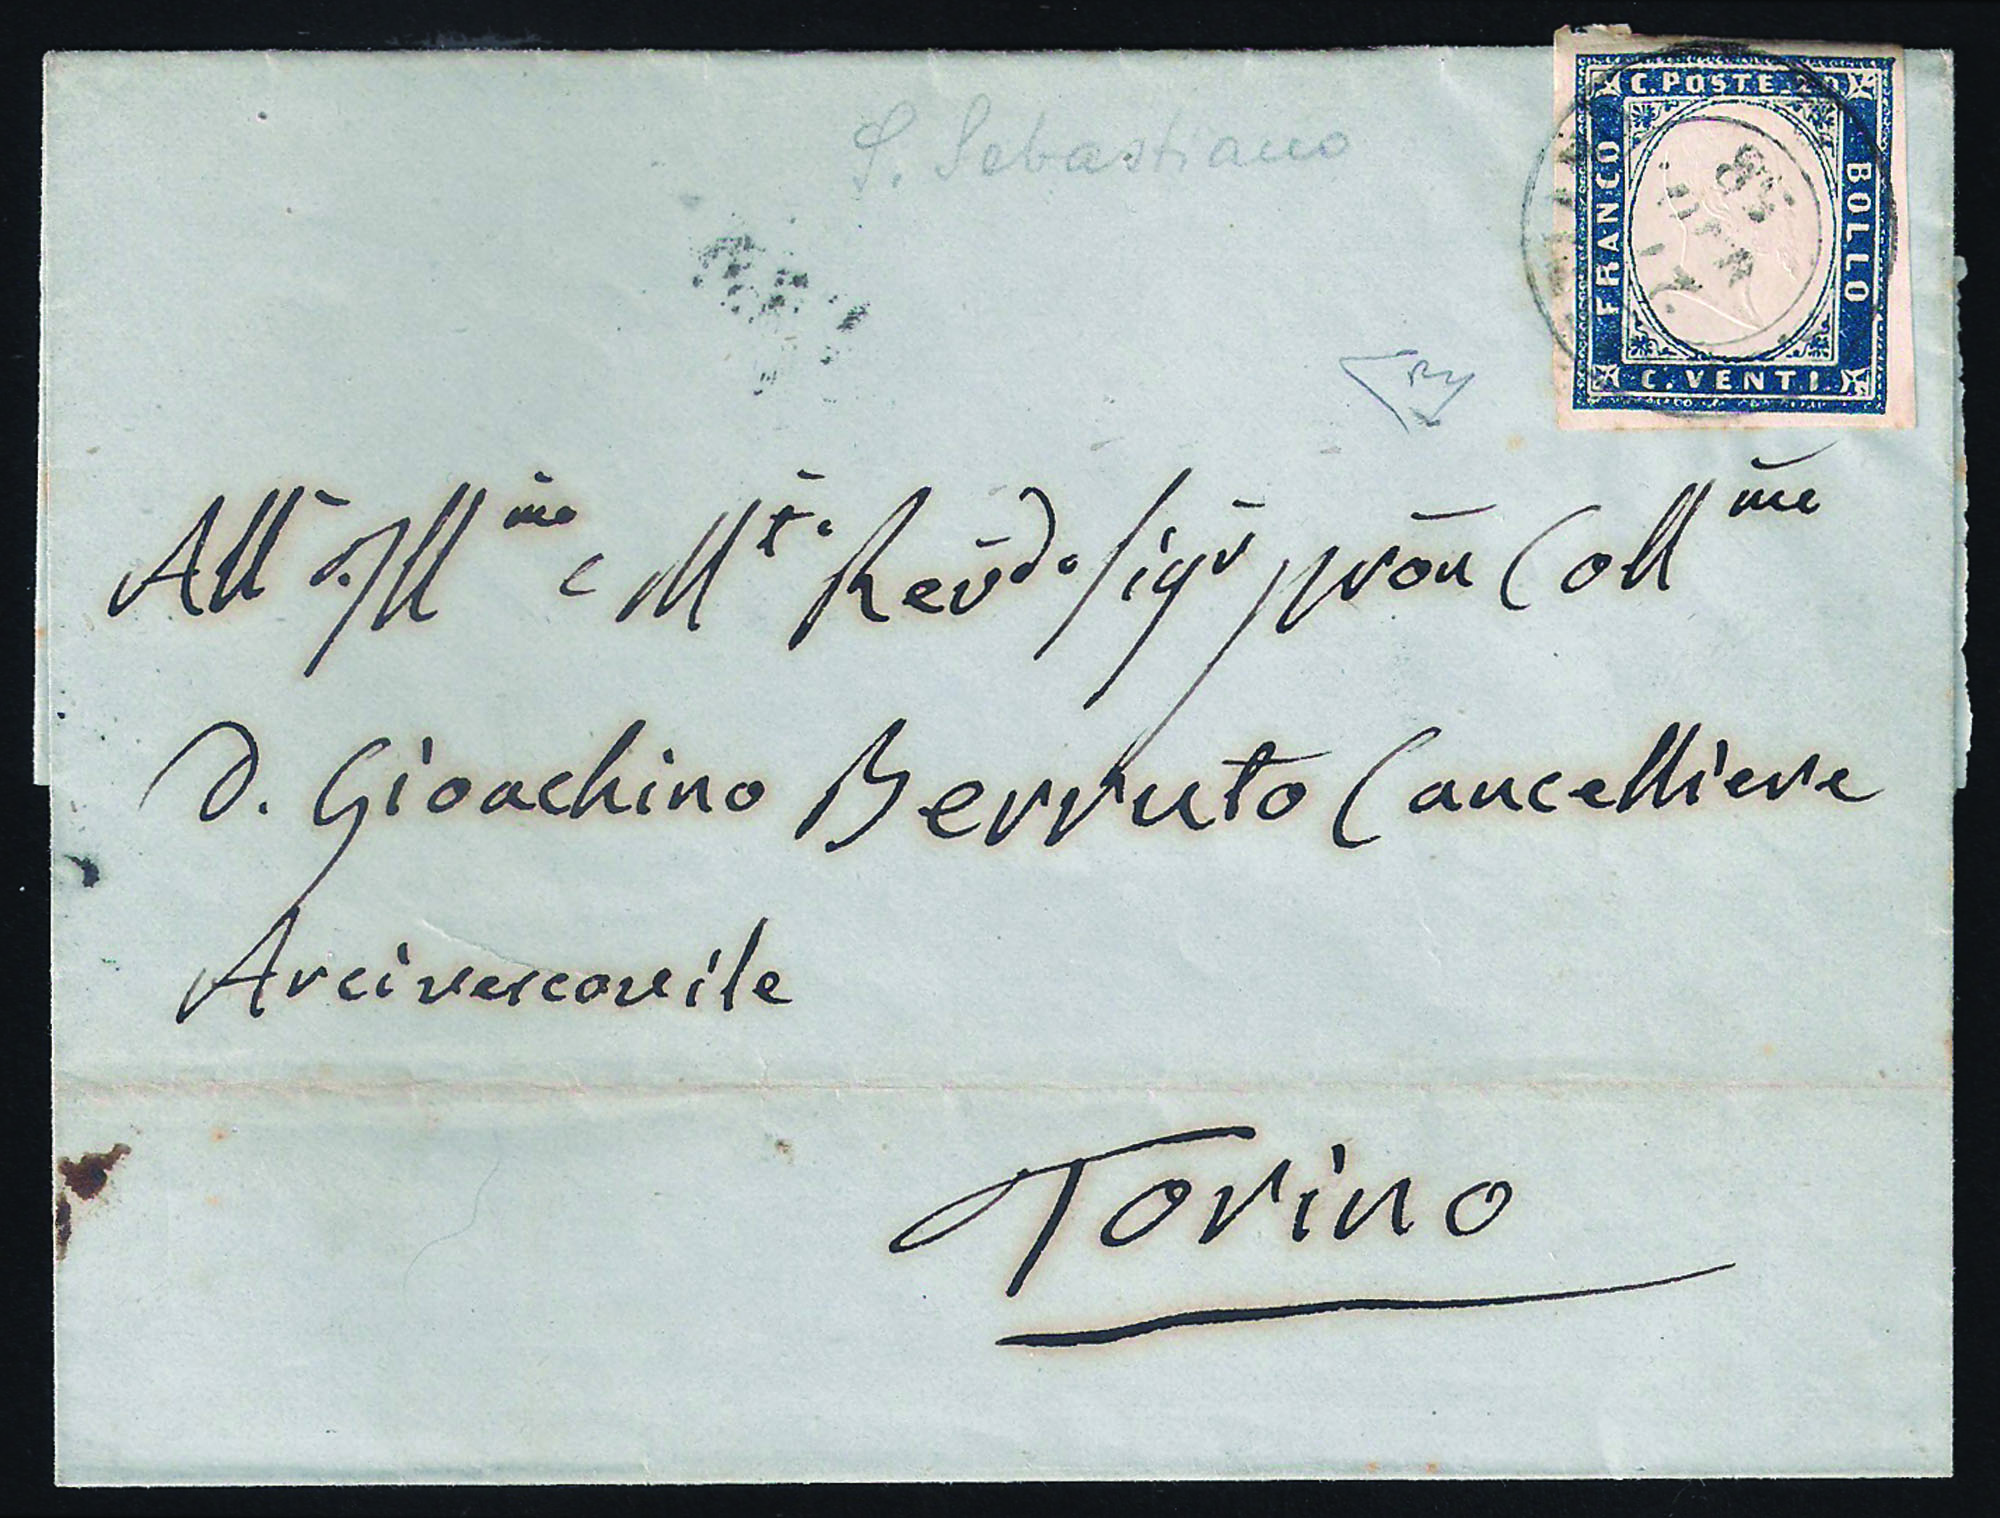 C. POSTE. 20
FRANCO
BOLLO
C. VENTI
S. Sebastiano
All' Ill.mo e M.to Rev.do Sigr pron Coll.mo
D. Gioachino Berruto Cancelliere
Arcivescovile
Torino